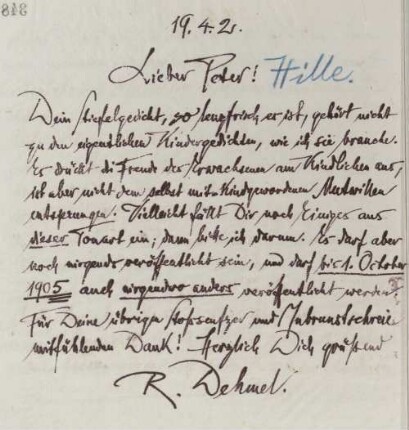 19. 4. 2.
Lieber Peter! Hille.
Dein Stiefelgedicht, so lenzfrisch es ist, gehört nicht
zu den eigentlichen Kindergedichten, wie ich sie brauche.
Es drückt die Freude des Erwachsenen am Kindlichen aus,
ist aber nicht dem selbst mit-Kindgewordenen Mutwillen
entsprungen. Vielleicht fällt Dir noch Einiges aus
dieser Tonart ein; dann bitte ich darum. Es darf aber
noch nirgends veröffentlicht sein, und darf bis 1. October
1905 auch nirgendwo anders veröffentlicht werden.
Für Deine übrigen Stoßseufzer und Inbrunstschreie
mitfühlenden Dank! Herzlich Dich grüßend
R. Dehmel.